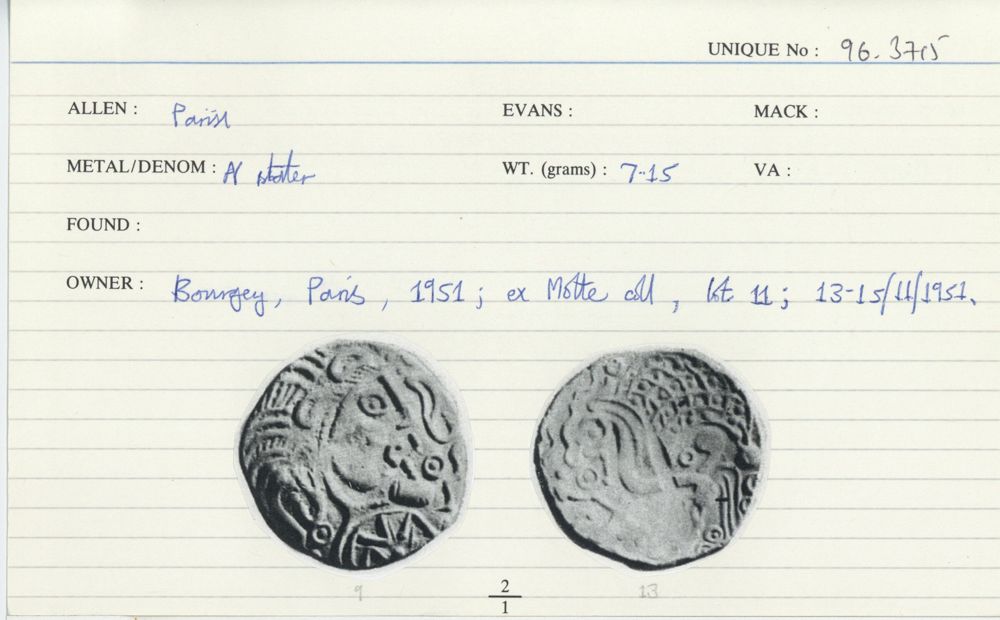 UNIQUE No : 96.3715
ALLEN : Parisii EVANS : MACK :
METAL/DENOM : A/ stater WT. (grams) : 7.15 VA :
FOUND :
OWNER : Bourgey, Paris, 1951; ex Motte coll, lot 11; 13-15/11/1951.
9 2/1 13